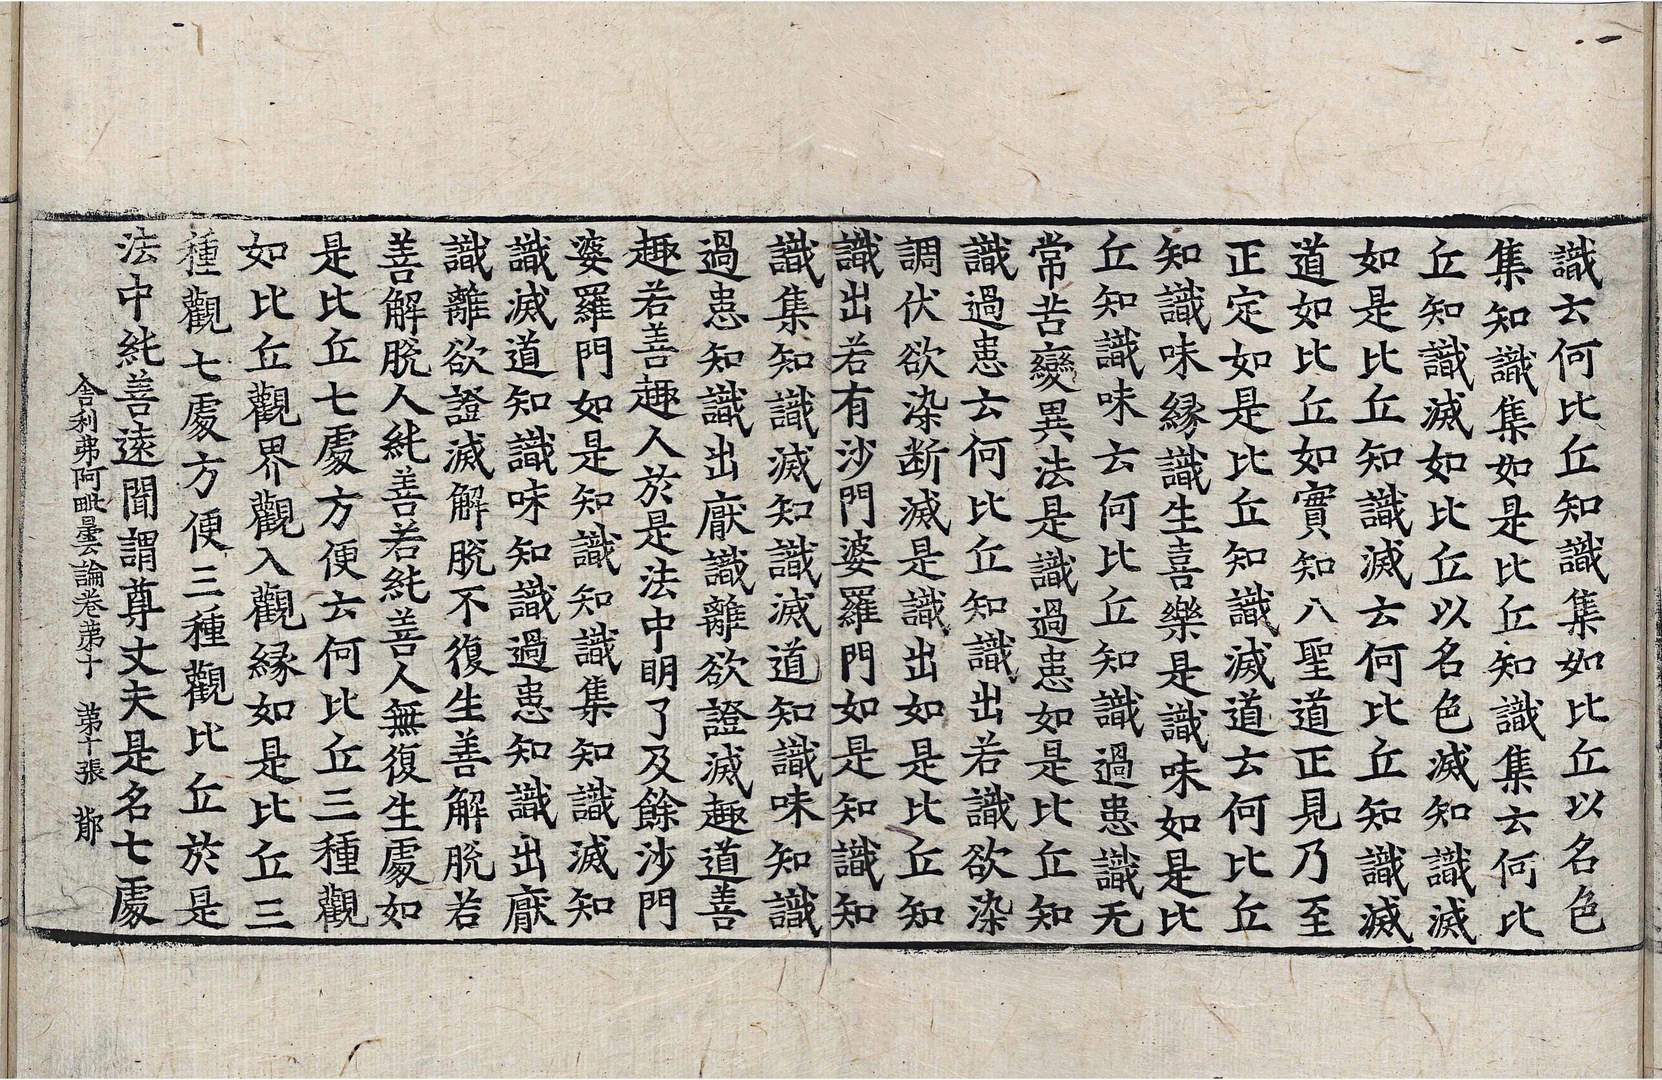 識云何比丘知識集如比丘以名色
集知識集如是比丘知識集云何比
丘知識滅如比丘以名色滅知識滅
如是比丘知識滅云何比丘知識滅
道如比丘如實知八聖道正見乃至
正定如是比丘知識滅道云何比丘
知識味緣識生喜樂是識味如是比
丘知識味云何比丘知識過患識无
常苦變異法是識過患如是比丘知
識過患云何比丘知識出若識欲染
調伏欲染断滅是識出如是比丘知
識出若有沙門婆羅門如是知識知
識集知識滅知識滅道知識味知識
過患知識出厭識離欲證滅趣道善
趣若善趣人於是法中明了及餘沙門
婆羅門如是知識知識集知識滅知
識滅道知識味知識過患知識出厭
識離欲證滅解脫不復生善解脫若
善解脫人純善若純善人無復生處如
是比丘七處方便云何比丘三種觀
如比丘觀界觀入觀緣如是比丘三
種觀七處方便三種觀比丘於是
法中純善遠聞謂尊丈夫是名七處
舍利弗阿毗曇論卷苐十 苐十張